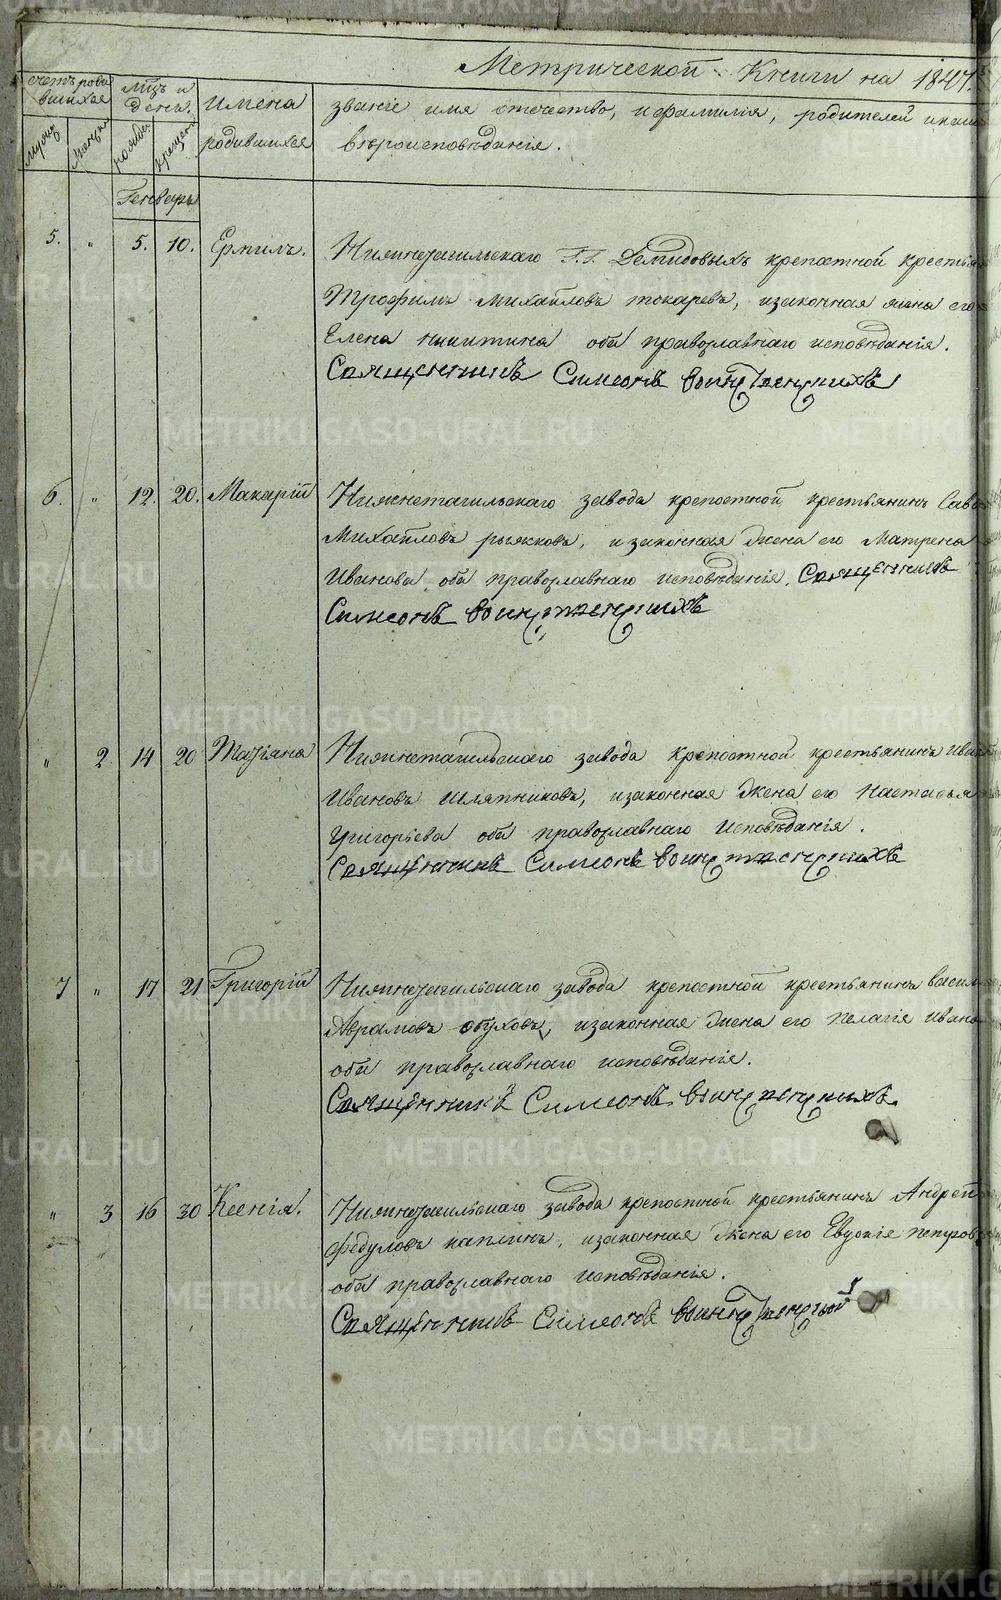 Метрической Книги на 1847.
счетъ роди
вшихся
мѣсъ и
день.
имена
родившихся
званіе имя отечество, и фамилія, родителей и какого
вѣроисповѣданія.
мужск
женска
рожде
крещен
Генварь
5. " 5. 10. Ермилъ. Нижнетагильскаго Г.Г. Демидовыхъ крепостной крестья
Трофимъ Михайловъ токаревъ, изаконная жена его
Елена никитина оба православнаго исповѣданія.
Священникъ Симеонъ воинственскихъ
6. " 12. 20. Макарій Нижнетагильскаго завода крепостной крестьянинъ Сава
Михайловъ рыжковъ, изаконная жена его Матрена
Иванова оба православнаго исповѣданія. Священникъ
Симеонъ воинственскихъ
" 2 14 20 Татіана Нижнетагильскаго завода крепостной крестьянинъ Иван
Ивановъ шляпниковъ, изаконная жена его Настасья
григорьева оба православнаго исповѣданія.
Священникъ Симеонъ воинственскихъ
7 " 17 21 Григорій Нижнетагильскаго завода крепостной крестьянинъ васил
Аврамовъ обуховъ, изаконная жена его пелагіе ивано
оба православнаго исповѣданіе.
Священникъ Симеонъ воинственскихъ.
" 3 16 30 Ксенія. Нижнетагильскаго завода крепостной крестьянинъ Андрей
федуловъ каплинъ, изаконная жена его Евдокіе петров
оба православнаго исповѣданія.
Священникъ Симеонъ
METRIKI.GASO-URAL.RU